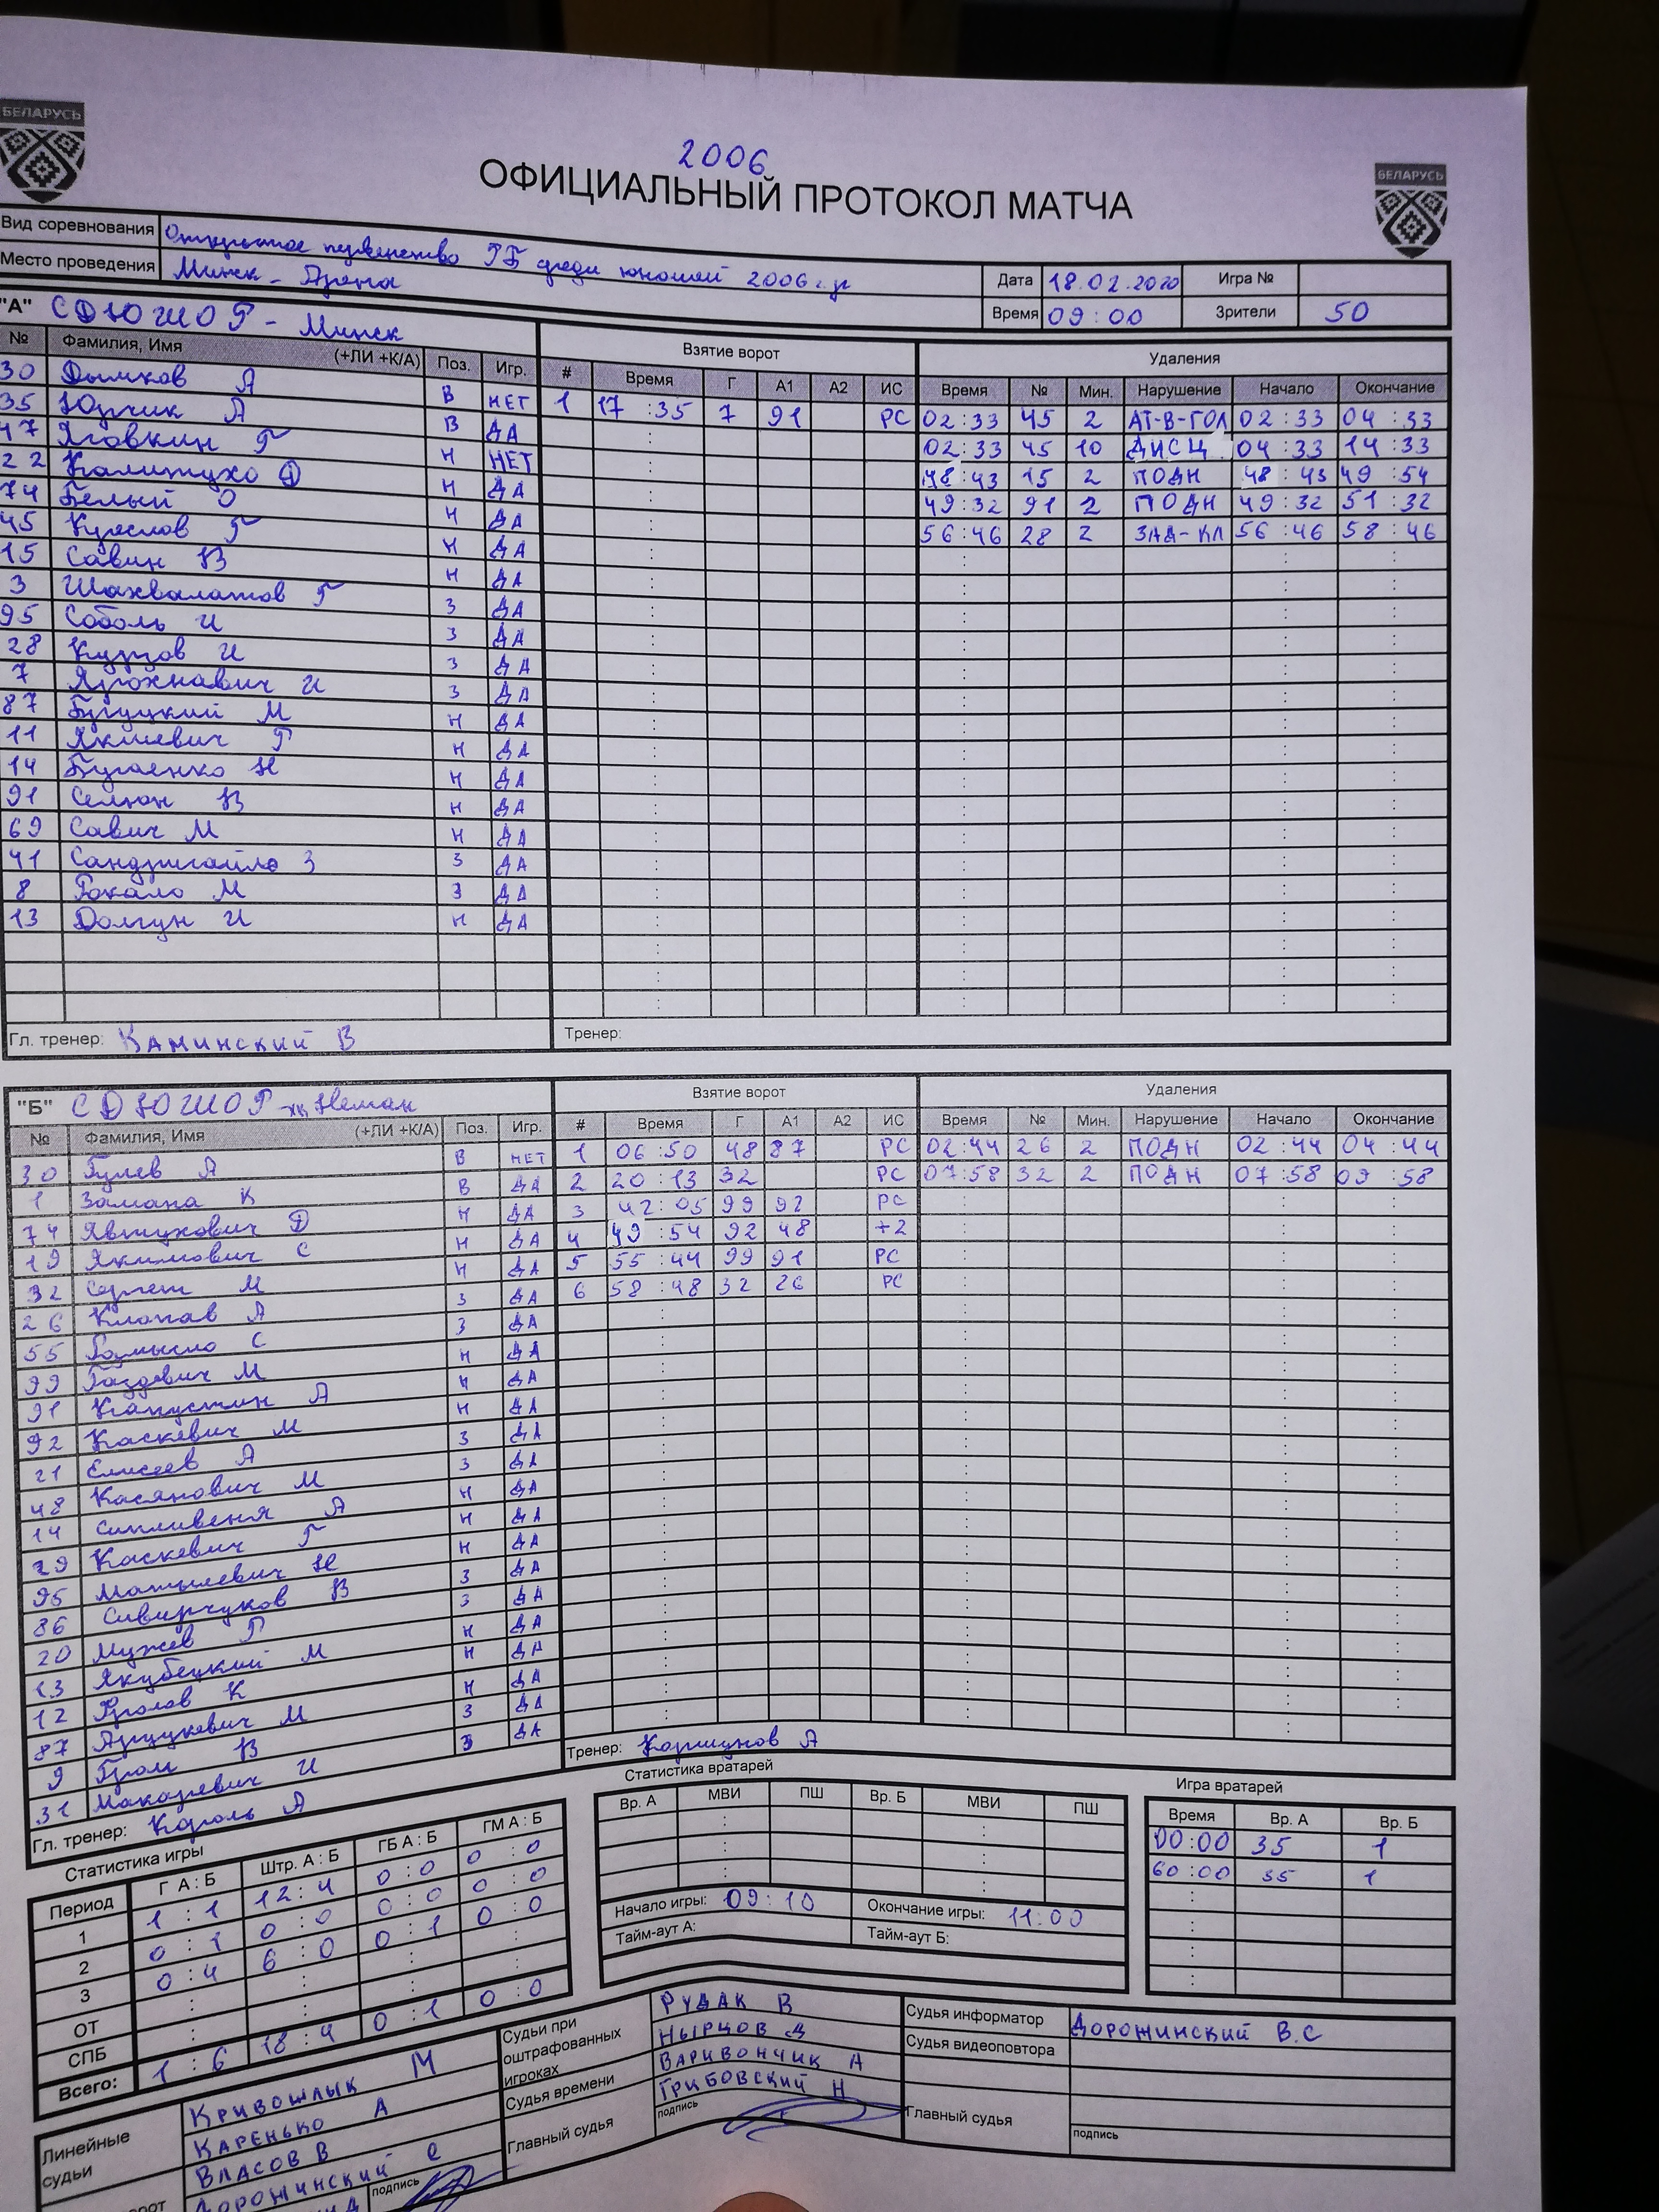 БЕЛАРУСЬ
БЕЛАРУСЬ
2006
ОФИЦИАЛЬНЫЙ ПРОТОКОЛ МАТЧА
Вид соревнования Открытое первенство РБ среди юношей 2006 г.р
Место проведения Минск - Арена Дата 18.02.2020 Игра №
Время 09:00 Зрители 50
"А" СДЮШОР - Минск Взятие ворот Удаления
№ Фамилия, Имя (+ЛИ +К/А) Поз. Игр. # Время Г А1 А2 ИС Время № Мин. Нарушение Начало Окончание
30 Дымков А В НЕТ 1 17:35 7 91 РС 02:33 45 2 АТ-В-ГОЛ 02:33 04:33
35 Юрчик А В ДА 02:33 45 10 ДИСЦ 04:33 14:33
47 Яговкин Г Н НЕТ 48:43 15 2 ПОДН 48:43 49:54
22 Калитухо Д Н ДА 49:32 91 2 ПОДН 49:32 51:32
74 Белый О Н ДА 56:46 28 2 ЗАД-КЛ 56:46 58:46
45 Круглов Г Н ДА
15 Савин В Н ДА
3 Шахвалатов Г З ДА
95 Соболь И З ДА
28 Курзов И З ДА
7 Ярохнавич И З ДА
87 Буцкий М Н ДА
11 Якшевич Г Н ДА
14 Бугаенко Н Н ДА
91 Селюн В Н ДА
69 Савич М Н ДА
41 Сандригайло З З ДА
8 Рокало М З ДА
13 Долгун И Н ДА
Гл. тренер: Каминский В Тренер:
"Б" СДЮШОР - хк Неман Взятие ворот Удаления
№ Фамилия, Имя (+ЛИ +К/А) Поз. Игр. # Время Г А1 А2 ИС Время № Мин. Нарушение Начало Окончание
30 Гулев А В НЕТ 1 06:50 48 87 РС 02:44 26 2 ПОДН 02:44 04:44
1 Замана К В ДА 2 20:13 32 РС 07:58 32 2 ПОДН 07:58 09:58
74 Явтухович Д Н ДА 3 42:05 99 92 РС
19 Якимович С Н ДА 4 49:54 92 48 +2
32 Сергей М Н ДА 5 55:44 99 91 РС
26 Клопав А З ДА 6 58:48 32 26 РС
55 Ромысло С З ДА
99 Газдевич М Н ДА
91 Капустин А Н ДА
92 Каскевич М Н ДА
21 Елисеев А З ДА
48 Касянович М З ДА
14 Сипливеня А Н ДА
29 Каскевич Г Н ДА
95 Матылевич Н Н ДА
86 Сивирчуков В З ДА
20 Мужев Г З ДА
13 Якубецкий М Н ДА
12 Фролов К Н ДА
87 Ярцукевич М Н ДА
9 Гром В З ДА
31 Макаревич И З ДА
Гл. тренер: Король А Тренер: Коршунов А
Статистика игры Статистика вратарей Игра вратарей
Период Г А : Б Штр. А : Б ГБ А : Б ГМ А : Б
1 1:1 12:4 0:0 0:0
2 0:1 0:0 0:0 0:0
3 0:4 6:0 0:1 0:0
ОТ
СПБ
Всего: 1:6 18:4 0:1 0:0
Вр. А МВИ ПШ Вр. Б МВИ ПШ
Начало игры: 09:10 Окончание игры: 11:00
Тайм-аут А: Тайм-аут Б:
Время Вр. А Вр. Б
00:00 35 1
60:00 35 1
Линейные судьи
Кривошлык М
Каренько А
Власов В
Дорожинский С
подпись
Судьи при оштрафованных игроках
Рудак В
Нырцов Д
Судья времени Варивончик А
Главный судья Грибовский Н
подпись
Судья информатор Дорожинский В.С
Судья видеоповтора
Главный судья
подпись